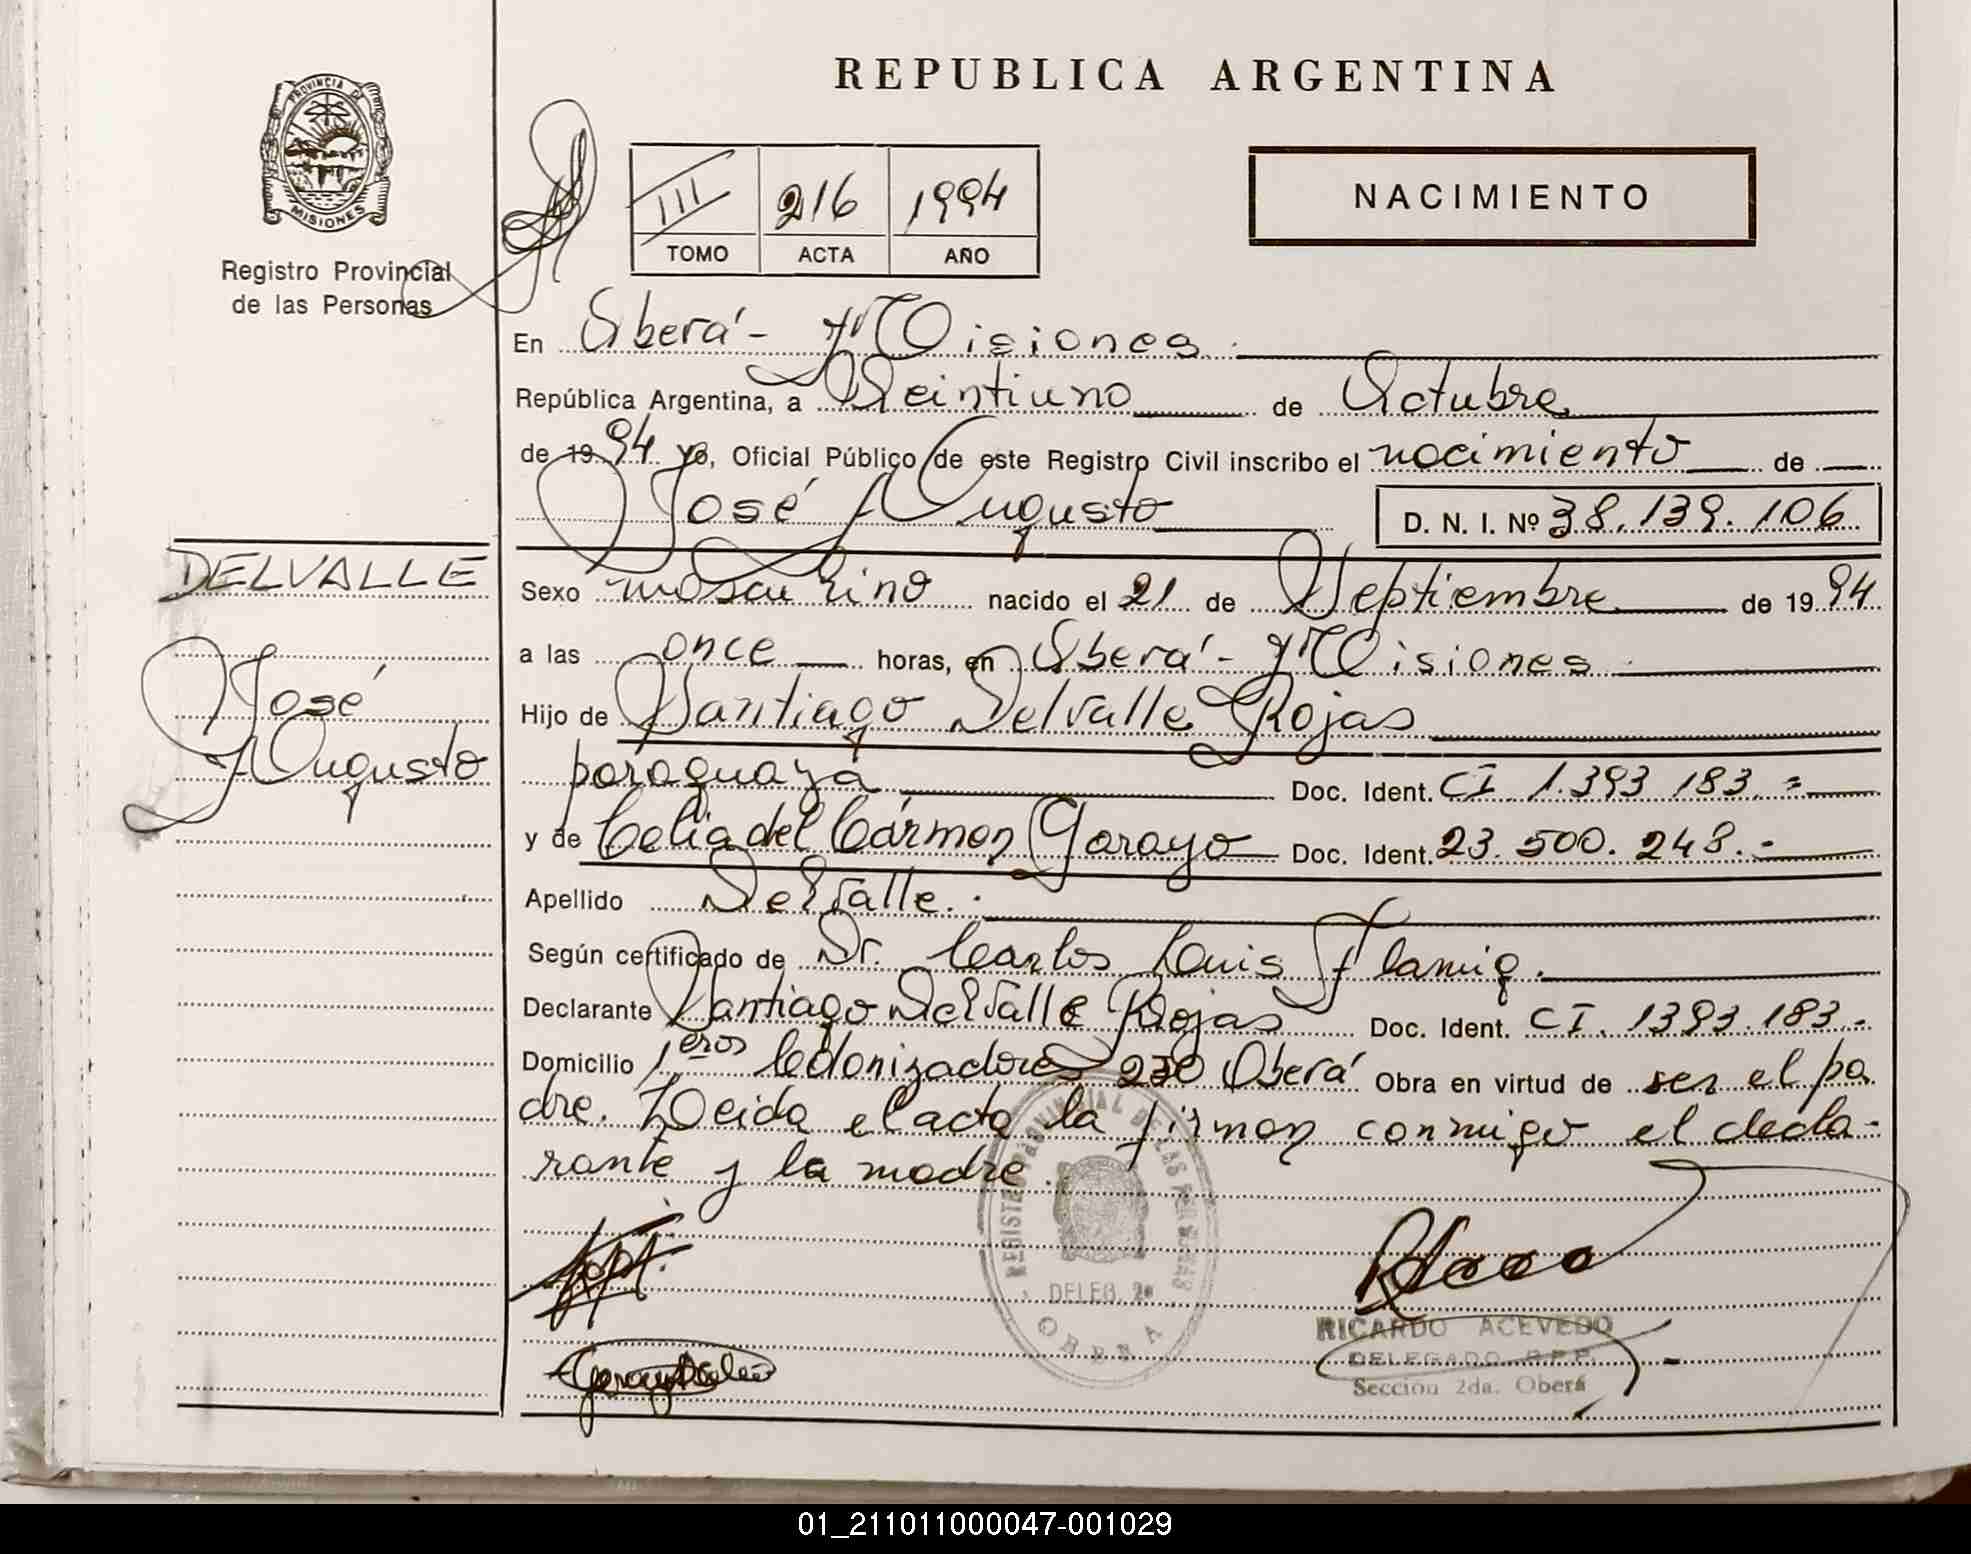 REPUBLICA ARGENTINA
PROVINCIA DE
MISIONES
Registro Provincial
de las Personas
III 216 1994
TOMO ACTA AÑO
NACIMIENTO
En Oberá - Misiones
República Argentina, a Veintiuno de Octubre
de 1994 yo, Oficial Público de este Registro Civil inscribo el nacimiento de
José Augusto D. N. I. Nº 38.139.106
DELVALLE
José
Augusto
Sexo masculino nacido el 21 de Septiembre de 1994
a las once horas, en Oberá - Misiones
Hijo de Santiago Delvalle Rojas
paraguaya Doc. Ident. CI 1.393 183.=
y de Celia del Cármen Garayo Doc. Ident. 23.500.248.-
Apellido Delvalle.
Según certificado de Dr. Carlos Luis Flamig.
Declarante Santiago Delvalle Rojas Doc. Ident. CI. 1393.183.-
Domicilio 1eros Colonizadores 230 Oberá Obra en virtud de ser el pa
dre. Leida el acta la firman conmigo el decla-
rante y la madre.
REGISTRO PROVINCIAL DE LAS PERSONAS
DELEG. 2a
OBERA
RICARDO ACEVEDO
DELEGADO R.P.P.
Sección 2da. Oberá
01_211011000047-001029